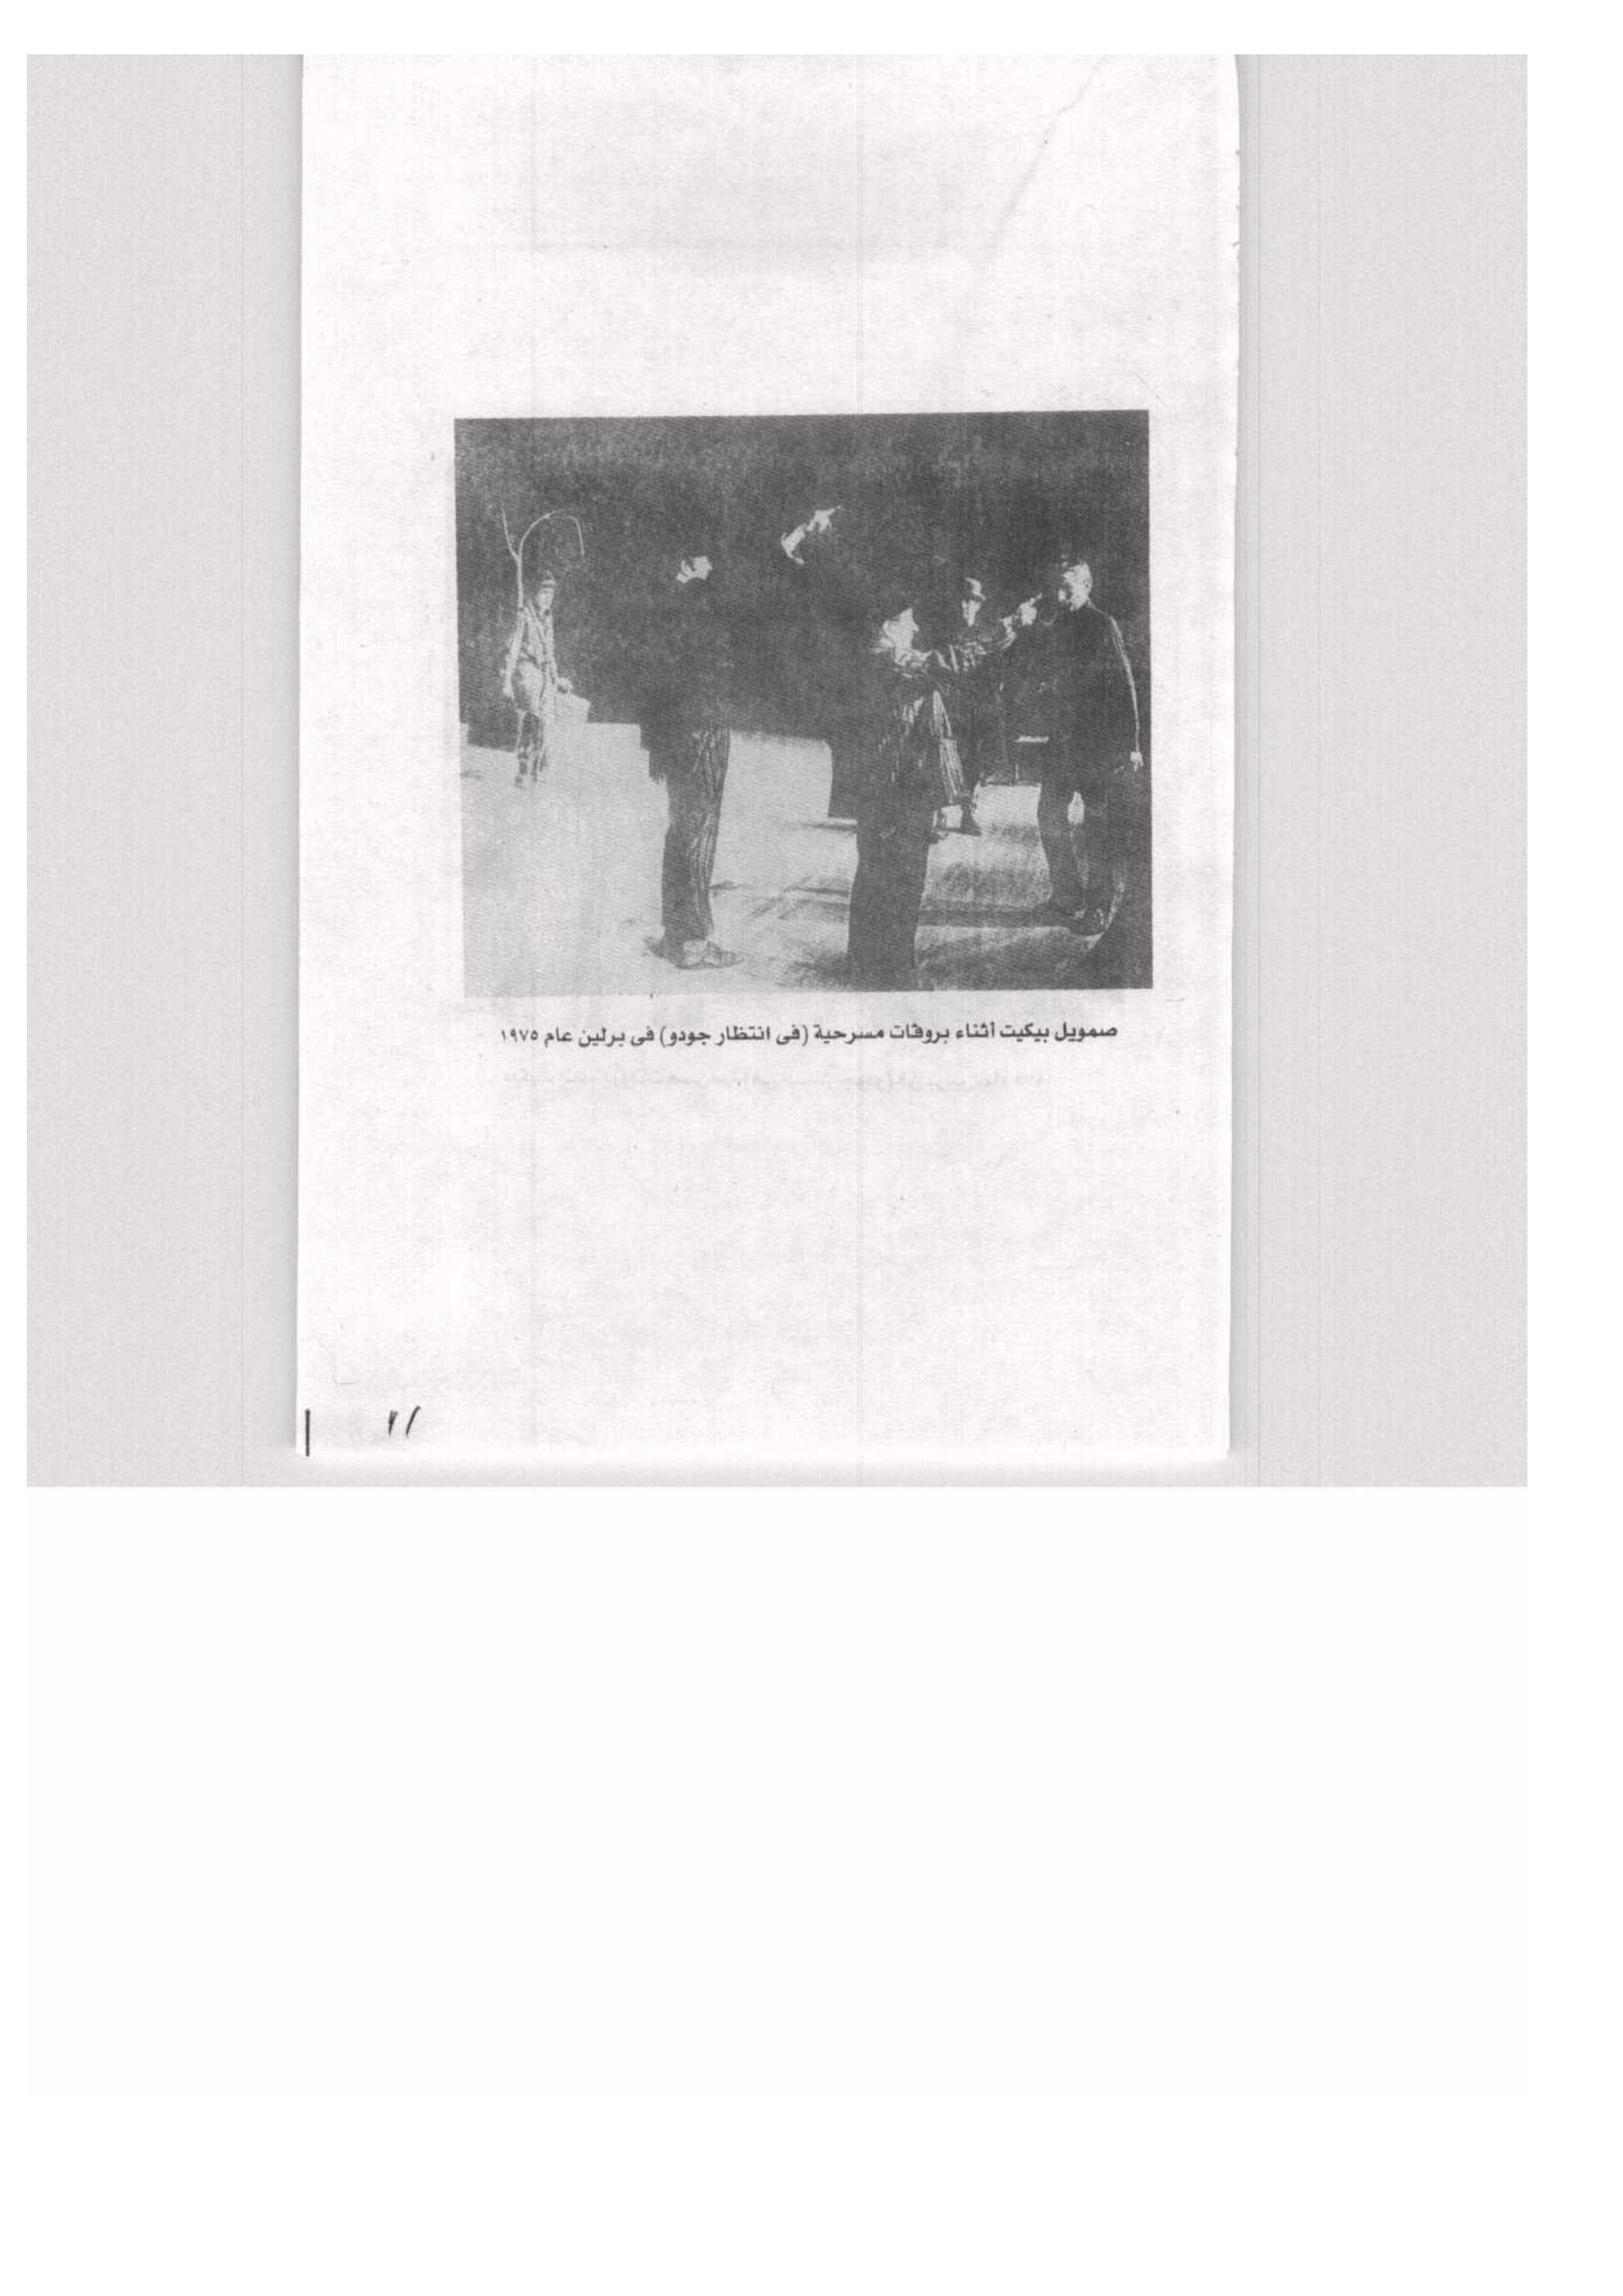 صمويل بيكيت أثناء بروفات مسرحية (فى انتظار جودو) فى برلين عام ١٩٧٥